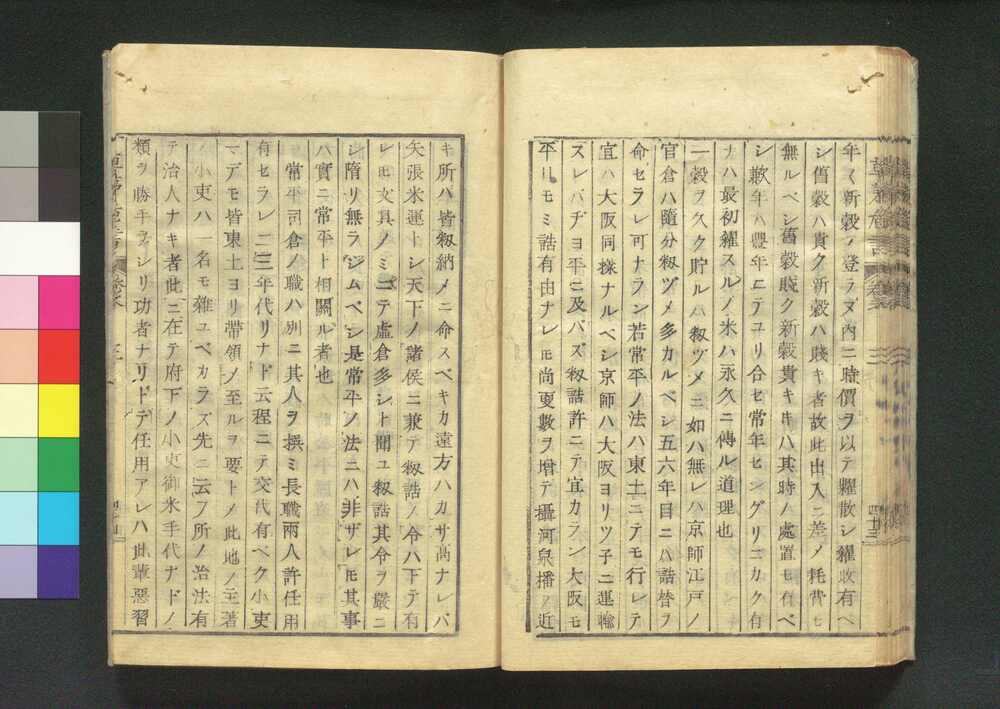 年〱新穀ノ登ラヌ内ニ時價ヲ以テ糶散シ糴收有ベ
シ舊穀ハ貴ク新穀ハ賤キ者故此出入ニ差ノ耗費モ
無ルベシ舊穀賤ク新穀貴キ𪜈ハ其時ノ處置モ有ベ
シ歉年ハ豊年ニテユリ合セ常年ヒングリニカク有
ナハ最初糴スルノ米ハ永久ニ傳ル道理也
一穀ヲ久ク貯ルハ籾ヅメニ如ハ無レハ京師江戸ノ
官倉ハ隨分籾ヅメ多カルベシ五六年目ニハ詰替ヲ
命セラレ可ナラン若常平ノ法ハ東土ニテモ行レテ
宜ハ大阪同樣ナルベシ京師ハ大阪ヨリツ子ニ運輸
スレバヂヨ平ニ及バズ籾詰許ニテ宜カラン大阪モ
平日モミ詰有由ナレ𪜈尚更數ヲ増テ攝河泉播ノ近
キ所ハ皆籾納メニ命スベキカ遠方ハカサ高ナレバ
矢張米運トシ天下ノ諸侯ニ兼テ籾詰ノ令ハ下テ有
レ𪜈文具ノミニテ虚倉多シト聞ユ籾詰其令ヲ嚴ニ
シ隋リ無ラシムベシ是常平ノ法ニハ非ザレ𪜈其事
ハ實ニ常平ト相關ル者也
常平司倉ノ職ハ別ニ其人ヲ撰ミ長職兩人許任用
有セラレ二三年代リナド云程ニテ交代有ベク小吏
マデモ皆東土ヨリ帶領ノ至ルヲ要トメ此地ノ土著
ノ小吏ハ一名モ雜ユベカラズ先ニ云フ所ノ治法有
テ治人ナキ者此ニ在テ府下ノ小吏御米手代ナドノ
類ヲ勝手ヲシリ功者ナリトテ任用アレハ此輩惡習